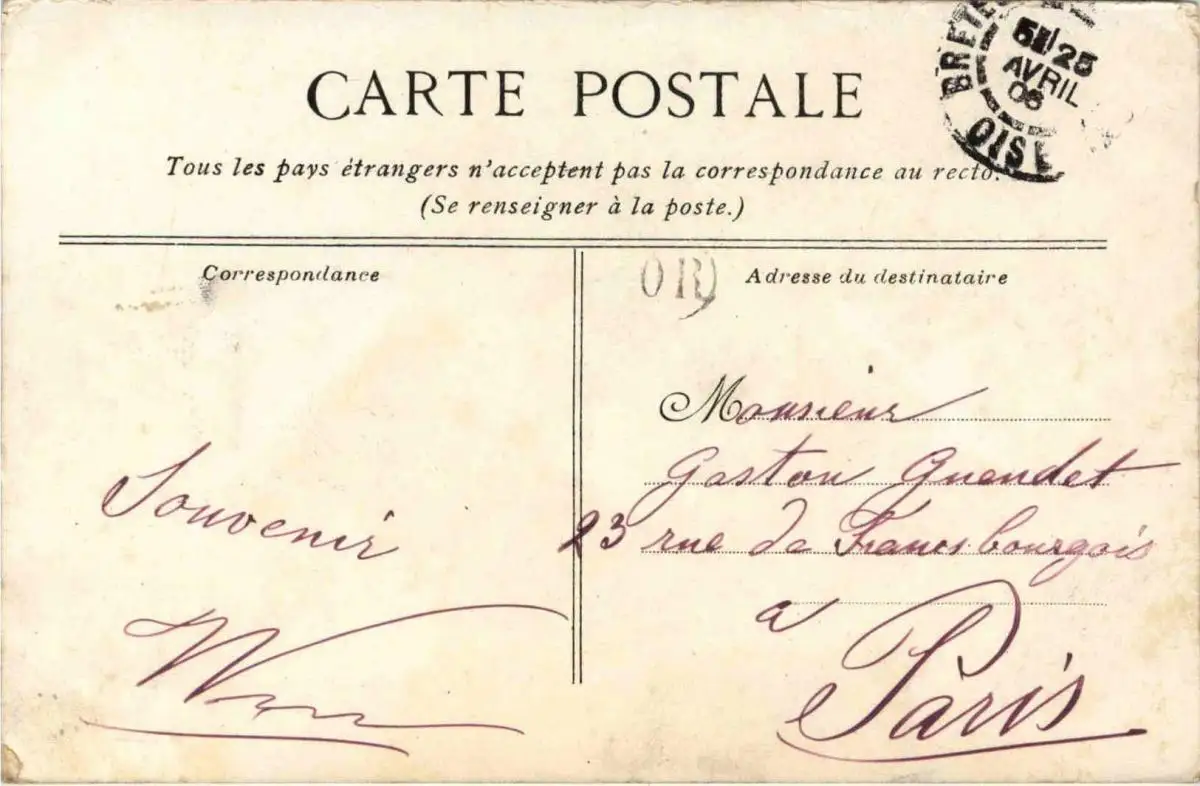 CARTE POSTALE
BRETE
5E/25
AVRIL
06
OISE
Tous les pays étrangers n'acceptent pas la correspondance au recto.
(Se renseigner à la poste.)
Correspondance
OR
Adresse du destinataire
Souvenir
Monsieur
Gaston Guendet
23 rue de Francs bourgois
a
Paris